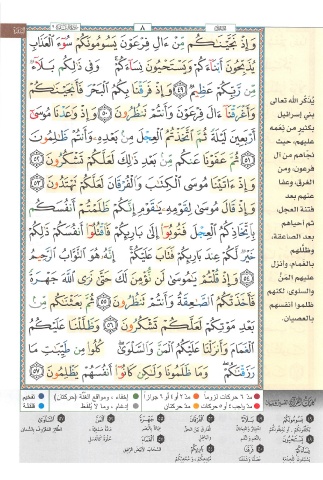 ٨
وَإِذْ نَجَّيْنَٰكُم مِّنْ ءَالِ فِرْعَوْنَ يَسُومُونَكُمْ سُوٓءَ ٱلْعَذَابِ
يُذَبِّحُونَ أَبْنَآءَكُمْ وَيَسْتَحْيُونَ نِسَآءَكُمْ ۚ وَفِى ذَٰلِكُم بَلَآءٌ
مِّن رَّبِّكُمْ عَظِيمٌ ٤٩ وَإِذْ فَرَقْنَا بِكُمُ ٱلْبَحْرَ فَأَنجَيْنَٰكُمْ
وَأَغْرَقْنَآ ءَالَ فِرْعَوْنَ وَأَنتُمْ تَنظُرُونَ ٥٠ وَإِذْ وَٰعَدْنَا مُوسَىٰٓ
أَرْبَعِينَ لَيْلَةً ثُمَّ ٱتَّخَذْتُمُ ٱلْعِجْلَ مِنۢ بَعْدِهِۦ وَأَنتُمْ ظَٰلِمُونَ
٥١ ثُمَّ عَفَوْنَا عَنكُم مِّنۢ بَعْدِ ذَٰلِكَ لَعَلَّكُمْ تَشْكُرُونَ ٥٢
وَإِذْ ءَاتَيْنَا مُوسَى ٱلْكِتَٰبَ وَٱلْفُرْقَانَ لَعَلَّكُمْ تَهْتَدُونَ ٥٣
وَإِذْ قَالَ مُوسَىٰ لِقَوْمِهِۦ يَٰقَوْمِ إِنَّكُمْ ظَلَمْتُمْ أَنفُسَكُم
بِٱتِّخَاذِكُمُ ٱلْعِجْلَ فَتُوبُوٓا۟ إِلَىٰ بَارِئِكُمْ فَٱقْتُلُوٓا۟ أَنفُسَكُمْ ذَٰلِكُمْ
خَيْرٌ لَّكُمْ عِندَ بَارِئِكُمْ فَتَابَ عَلَيْكُمْ ۚ إِنَّهُۥ هُوَ ٱلتَّوَّابُ ٱلرَّحِيمُ
٥٤ وَإِذْ قُلْتُمْ يَٰمُوسَىٰ لَن نُّؤْمِنَ لَكَ حَتَّىٰ نَرَى ٱللَّهَ جَهْرَةً
فَأَخَذَتْكُمُ ٱلصَّٰعِقَةُ وَأَنتُمْ تَنظُرُونَ ٥٥ ثُمَّ بَعَثْنَٰكُم مِّنۢ
بَعْدِ مَوْتِكُمْ لَعَلَّكُمْ تَشْكُرُونَ ٥٦ وَظَلَّلْنَا عَلَيْكُمُ
ٱلْغَمَامَ وَأَنزَلْنَا عَلَيْكُمُ ٱلْمَنَّ وَٱلسَّلْوَىٰ ۖ كُلُوا۟ مِن طَيِّبَٰتِ مَا
رَزَقْنَٰكُمْ ۖ وَمَا ظَلَمُونَا وَلَٰكِن كَانُوٓا۟ أَنفُسَهُمْ يَظْلِمُونَ ٥٧
يُذكّر الله تعالى
بني إسرائيل
بكثير من نعمه
عليهم، حيث
نجاهم من آل
فرعون، ومن
الغرق، وعفا
عنهم بعد
فتنة العجل،
ثم أحياهم
بعد الصاعقة،
وظللهم
بالغمام، وأنزل
عليهم المنّ
والسلوى، لكنهم
ظلموا أنفسهم
بالعصيان.
مدّ ٦ حركات لزوماً
مدّ ٢ أو ٤ أو ٦ جوازاً
إخفاء، ومواقع الغنّة (حركتان)
تفخيم
مدّ واجب ٤ أو ٥ حركات
مدّ حركتان
إدغام، وما لا يُلفظ
قلقلة